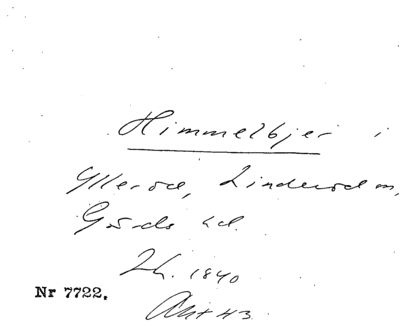 Himmelbjer i
Ullerød, Linderød sn,
Gärds hd.
Lh. 1840
Nr 7722.
Akt 43